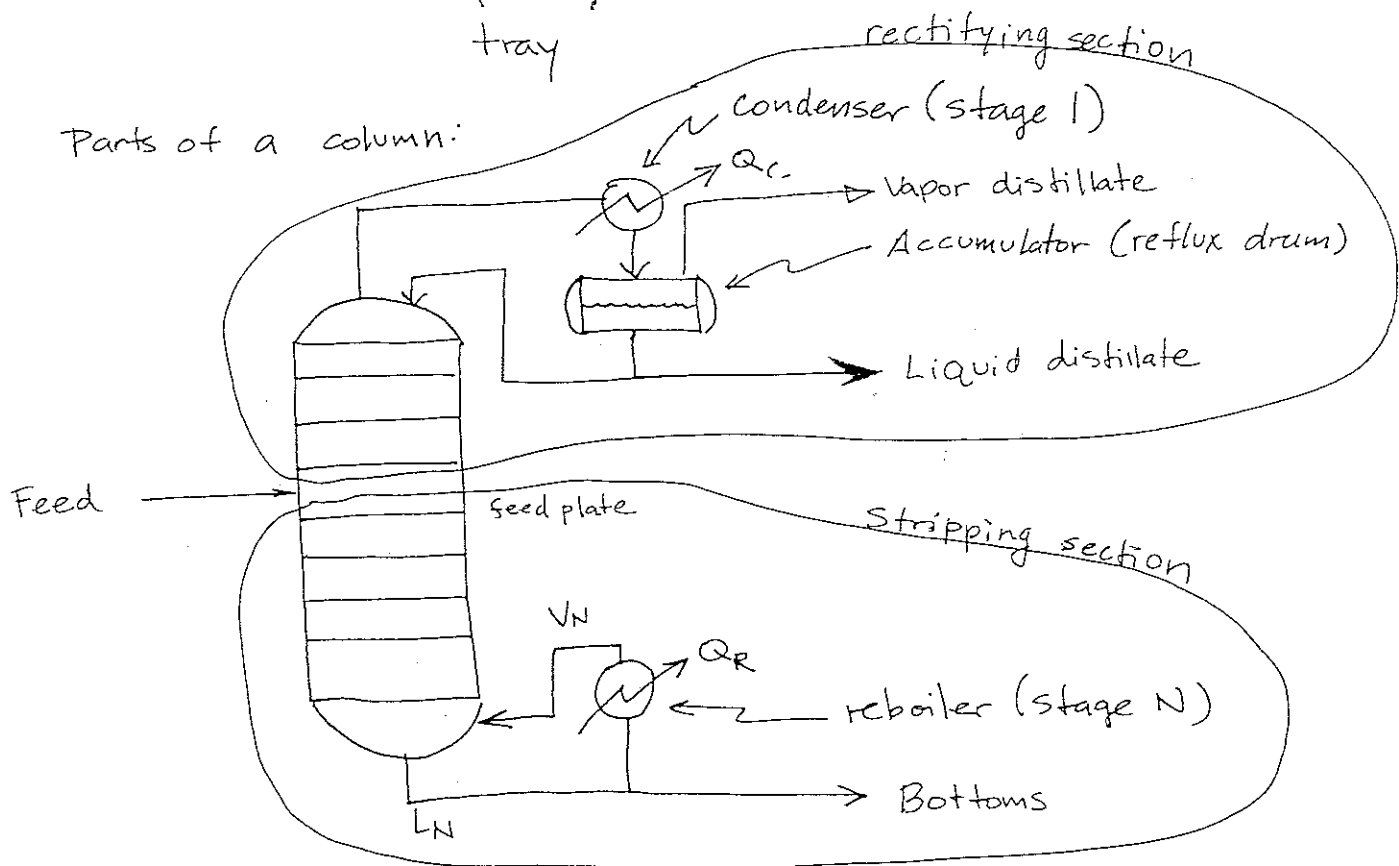 tray
rectifying section
Condenser (stage 1)
Parts of a column:
Qc.
Vapor distillate
Accumulator (reflux drum)
Liquid distillate
Feed
feed plate
Stripping section
VN
QR
reboiler (stage N)
Bottoms
LN